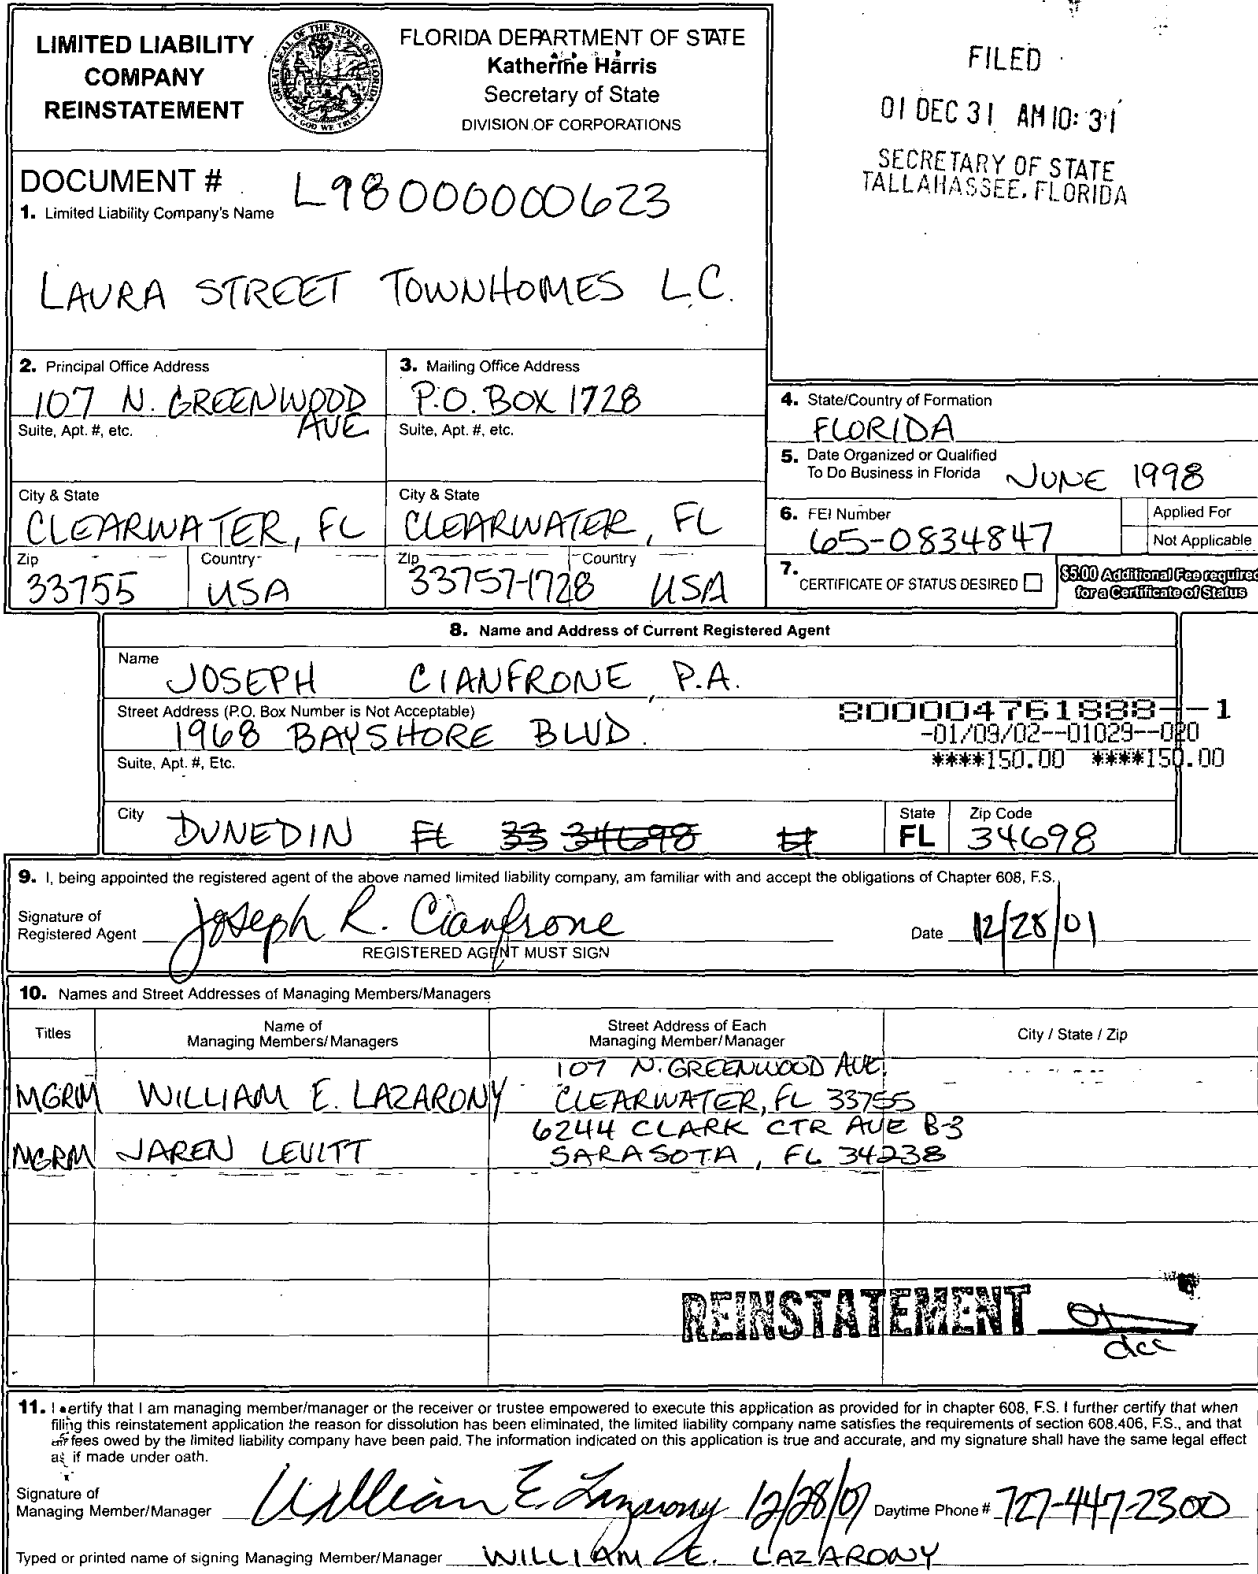 LIMITED LIABILITY
COMPANY
REINSTATEMENT
GREAT SEAL OF THE STATE OF FLORIDA
IN GOD WE TRUST
FLORIDA DEPARTMENT OF STATE
Katherine Harris
Secretary of State
DIVISION OF CORPORATIONS
FILED
01 DEC 31 AM 10:31
SECRETARY OF STATE
TALLAHASSEE, FLORIDA
DOCUMENT # L98000000623
1. Limited Liability Company's Name
LAURA STREET TOWNHOMES L.C.
2. Principal Office Address
107 N. GREENWOOD
AVE
Suite, Apt. #, etc.
City & State
CLEARWATER, FL
Zip
33755
Country
USA
3. Mailing Office Address
P.O. BOX 1728
Suite, Apt. #, etc.
City & State
CLEARWATER, FL
Zip
33757-1728
Country
USA
4. State/Country of Formation
FLORIDA
5. Date Organized or Qualified
To Do Business in Florida JUNE 1998
6. FEI Number
65-0834847
Applied For
Not Applicable
7. CERTIFICATE OF STATUS DESIRED
$5.00 Additional Fee required
for a Certificate of Status
8. Name and Address of Current Registered Agent
Name
JOSEPH CIANFRONE, P.A.
Street Address (P.O. Box Number is Not Acceptable)
1968 BAYSHORE BLVD.
800004761888--1
-01/03/02--01029--020
****150.00 ****150.00
Suite, Apt. #, Etc.
City
DUNEDIN FL 33 34698
State
FL
Zip Code
34698
9. I, being appointed the registered agent of the above named limited liability company, am familiar with and accept the obligations of Chapter 608, F.S.
Signature of
Registered Agent Joseph R. Cianfrone
Date 12/28/01
REGISTERED AGENT MUST SIGN
10. Names and Street Addresses of Managing Members/Managers
Titles
Name of
Managing Members/Managers
Street Address of Each
Managing Member/Manager
City / State / Zip
MGRM WILLIAM E. LAZARONY
107 N. GREENWOOD AVE.
CLEARWATER, FL 33755
MGRM JAREN LEVITT
6244 CLARK CTR AVE B-3
SARASOTA, FL 34238
REINSTATEMENT
dcc
11. I certify that I am managing member/manager or the receiver or trustee empowered to execute this application as provided for in chapter 608, F.S. I further certify that when
filing this reinstatement application the reason for dissolution has been eliminated, the limited liability company name satisfies the requirements of section 608.406, F.S., and that
all fees owed by the limited liability company have been paid. The information indicated on this application is true and accurate, and my signature shall have the same legal effect
as if made under oath.
Signature of
Managing Member/Manager William E. Lazarony 12/28/01 Daytime Phone # 727-447-2300
Typed or printed name of signing Managing Member/Manager WILLIAM E. LAZARONY